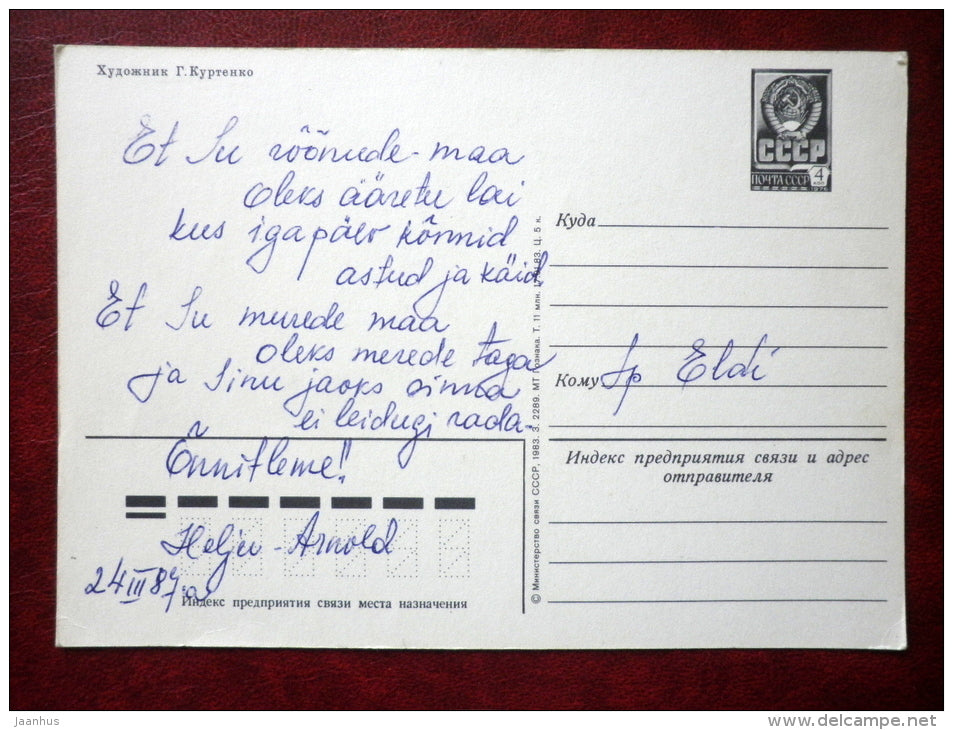 Художник Г. Куртенко
Et Su rõõmude-maa
oleks ääretu lai
kus igapäev kõnnid
astud ja käid
Et Su murede maa
oleks merede taga
ja Sinu jaoks sinna
ei leidugi rada.
Õnnitleme!
Helju - Arnold
24 III 87.a
Индекс предприятия связи места назначения
© Министерство связи СССР, 1983. З. 2289. МТ Гознака. Т. 11 млн. 83. Ц. 5 к.
СССР
ПОЧТА СССР 4
КОП
1976
Куда
Кому Sp Eldi
Индекс предприятия связи и адрес
отправителя
Jaanhus
delcampe.net